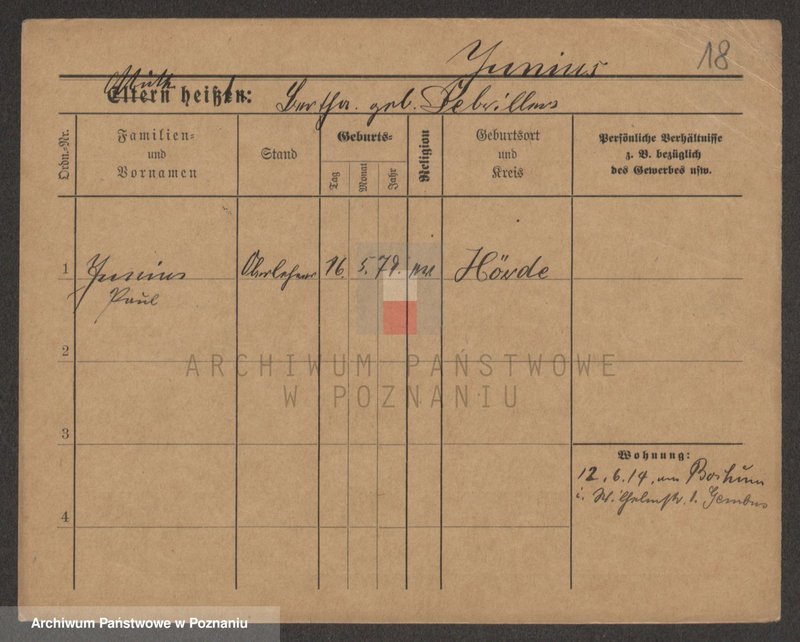 18
Junius
Mutter
Eltern heißen: Bertha geb.
Ordn.-Nr.
Familien-
und
Vornamen
Stand
Geburts-
Tag
Monat
Jahr
Religion
Geburtsort
und
Kreis
Persönliche Verhältnisse
z. B. bezüglich
des Gewerbes usw.
1 Junius Oberlehrer 16. 5. Hörde
Paul
2
ARCHIWUM PAŃSTWOWE
W POZNANIU
3
Wohnung:
12.6.14. Bochum
4
Archiwum Państwowe w Poznaniu